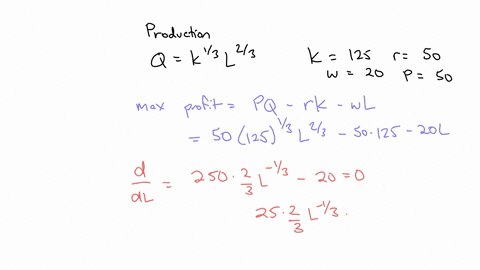 Production
Q = K^1/3 L^2/3
K = 125 r = 50
w = 20 P = 50
max profit = PQ - rK - wL
= 50(125)^1/3 L^2/3 - 50·125 - 20L
d/dL = 250 · 2/3 L^-1/3 - 20 = 0
25 · 2/3 L^-1/3 .